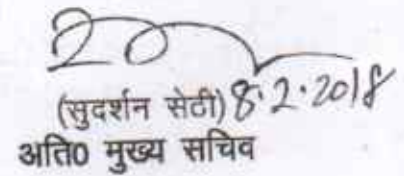 (सुदर्शन सेठी) 8.2.2018
अति0 मुख्य सचिव